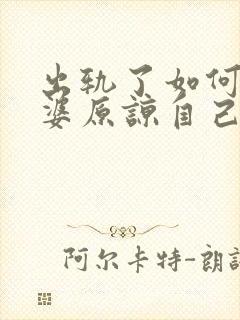 出轨了如何
婆原谅自己
阿尔卡特-朗